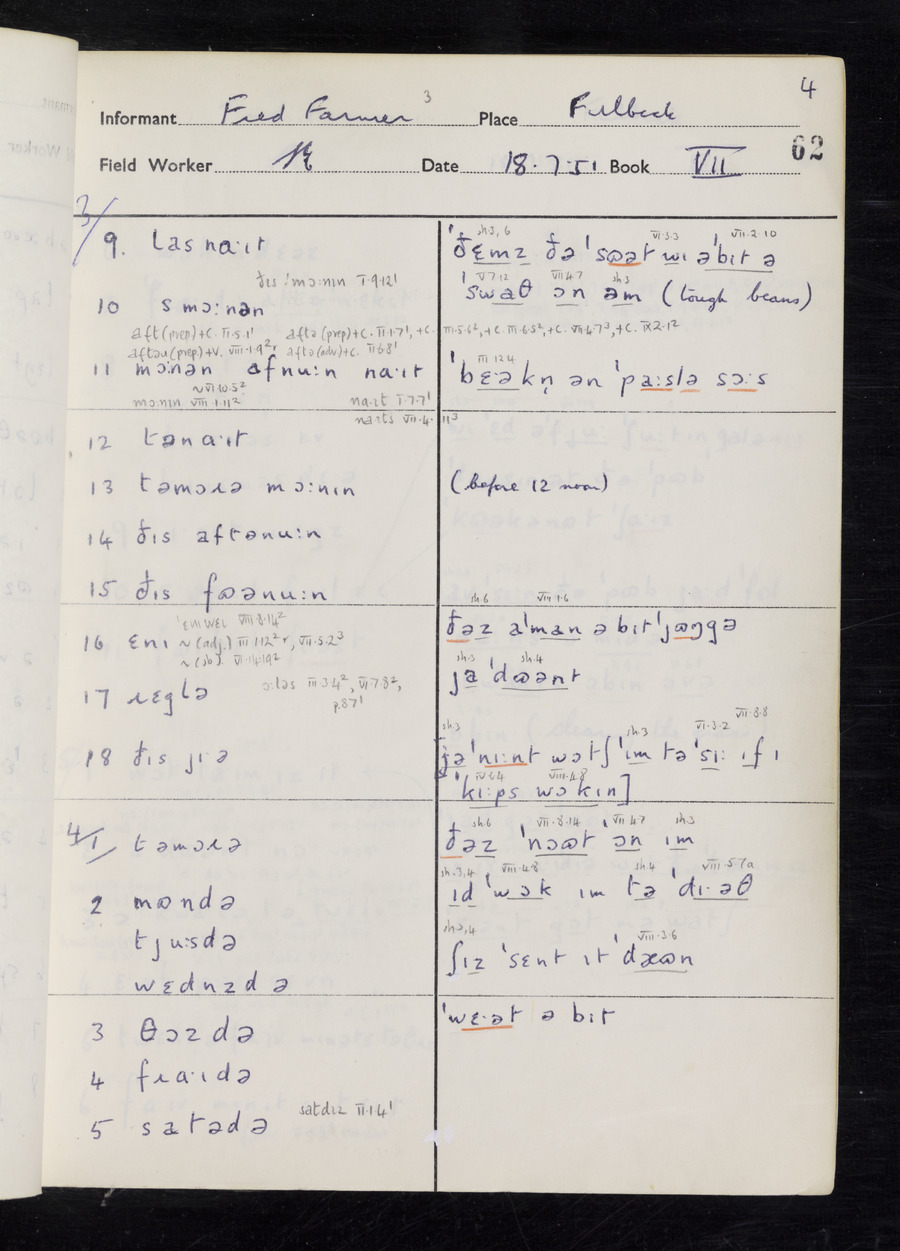 4
Informant Fred Farmer 3 Place Fulbeck
62
Field Worker Date 18.7.51 Book VII
3/
9. las na·ɪt
ðɪs ˈmɔ:nɪn I.9.12¹
10 s mɔ:nən
aft (prep)+C. II.5.1¹ aftə (prep)+C. II.1.7¹, +C. III.5.6², +C. III.6.5², +C. VII.4.7³, +C. IX.2.12
aftəɹ (prep)+V. VIII.1.9²r, aftə (adv)+C. II.6.8¹
11 mɔ:nən afnu:n na·ɪt
~ VI.10.5²
mɔ:nɪn VIII.1.11² na·ɪt I.7.7¹
na·ɪts VII.4.11³
12 təna·ɪt
13 təmɔɹə mɔ:nɪn
14 ðɪs aftənu:n
15 ðɪs fɷənu:n
ˈɛnɪwɛl VIII.8.14²
16 ɛnɪ ~ (adj.) III.1.12²r, VII.5.2³
~ (sb). VI.14.19²
17 ɹɛglə ɔ:ləs III.3.4², VI.7.8²,
p.87¹
18 ðɪs jɪ·ə
4/1 təmɔɹə
2 mɷndə
tju:sdə
wɛdnzdə
3 θɔzdə
4 fɹa·ɪdə
5 satədə satdɪz II.1.4¹
sh.3, 6 VI.3.3 VII.2.10
ˈðɛmz ðə ˈsɷət wɪ əˈbɪt ə
V.7.12 VII.4.7 sh.3
ˈswaθ ɔn əm (tough beans)
III.12.4
ˈbɛ·əkn̩ ən ˈpa:slə sɔ:s
(before 12 noon)
sh.6 VII.1.6
ðəz əˈman ə bɪt ˈjɷŋgə
sh.3 sh.4
ja ˈdɷənt
sh.3 sh.3 VI.3.2 VII.8.8
[jə ˈnɪ:nt wɔtʃ ˈɪm tə ˈsi: ɪf ɪ
IV.6.4 VIII.4.8
ˈkɪ:ps wɔkɪn]
sh.6 VII.8.14 VII.4.7 sh.3
ðəz ˈnɔɷt ɔn ɪm
sh.3,4 VIII.4.8 sh.4 VIII.5.7a
ɪd ˈwɔk ɪm tə ˈdɪ·əθ
sh.3,4 VIII.3.6
ʃɪz ˈsɛnt ɪt ˈdæɷn
ˈwɛ·ət ə bɪt